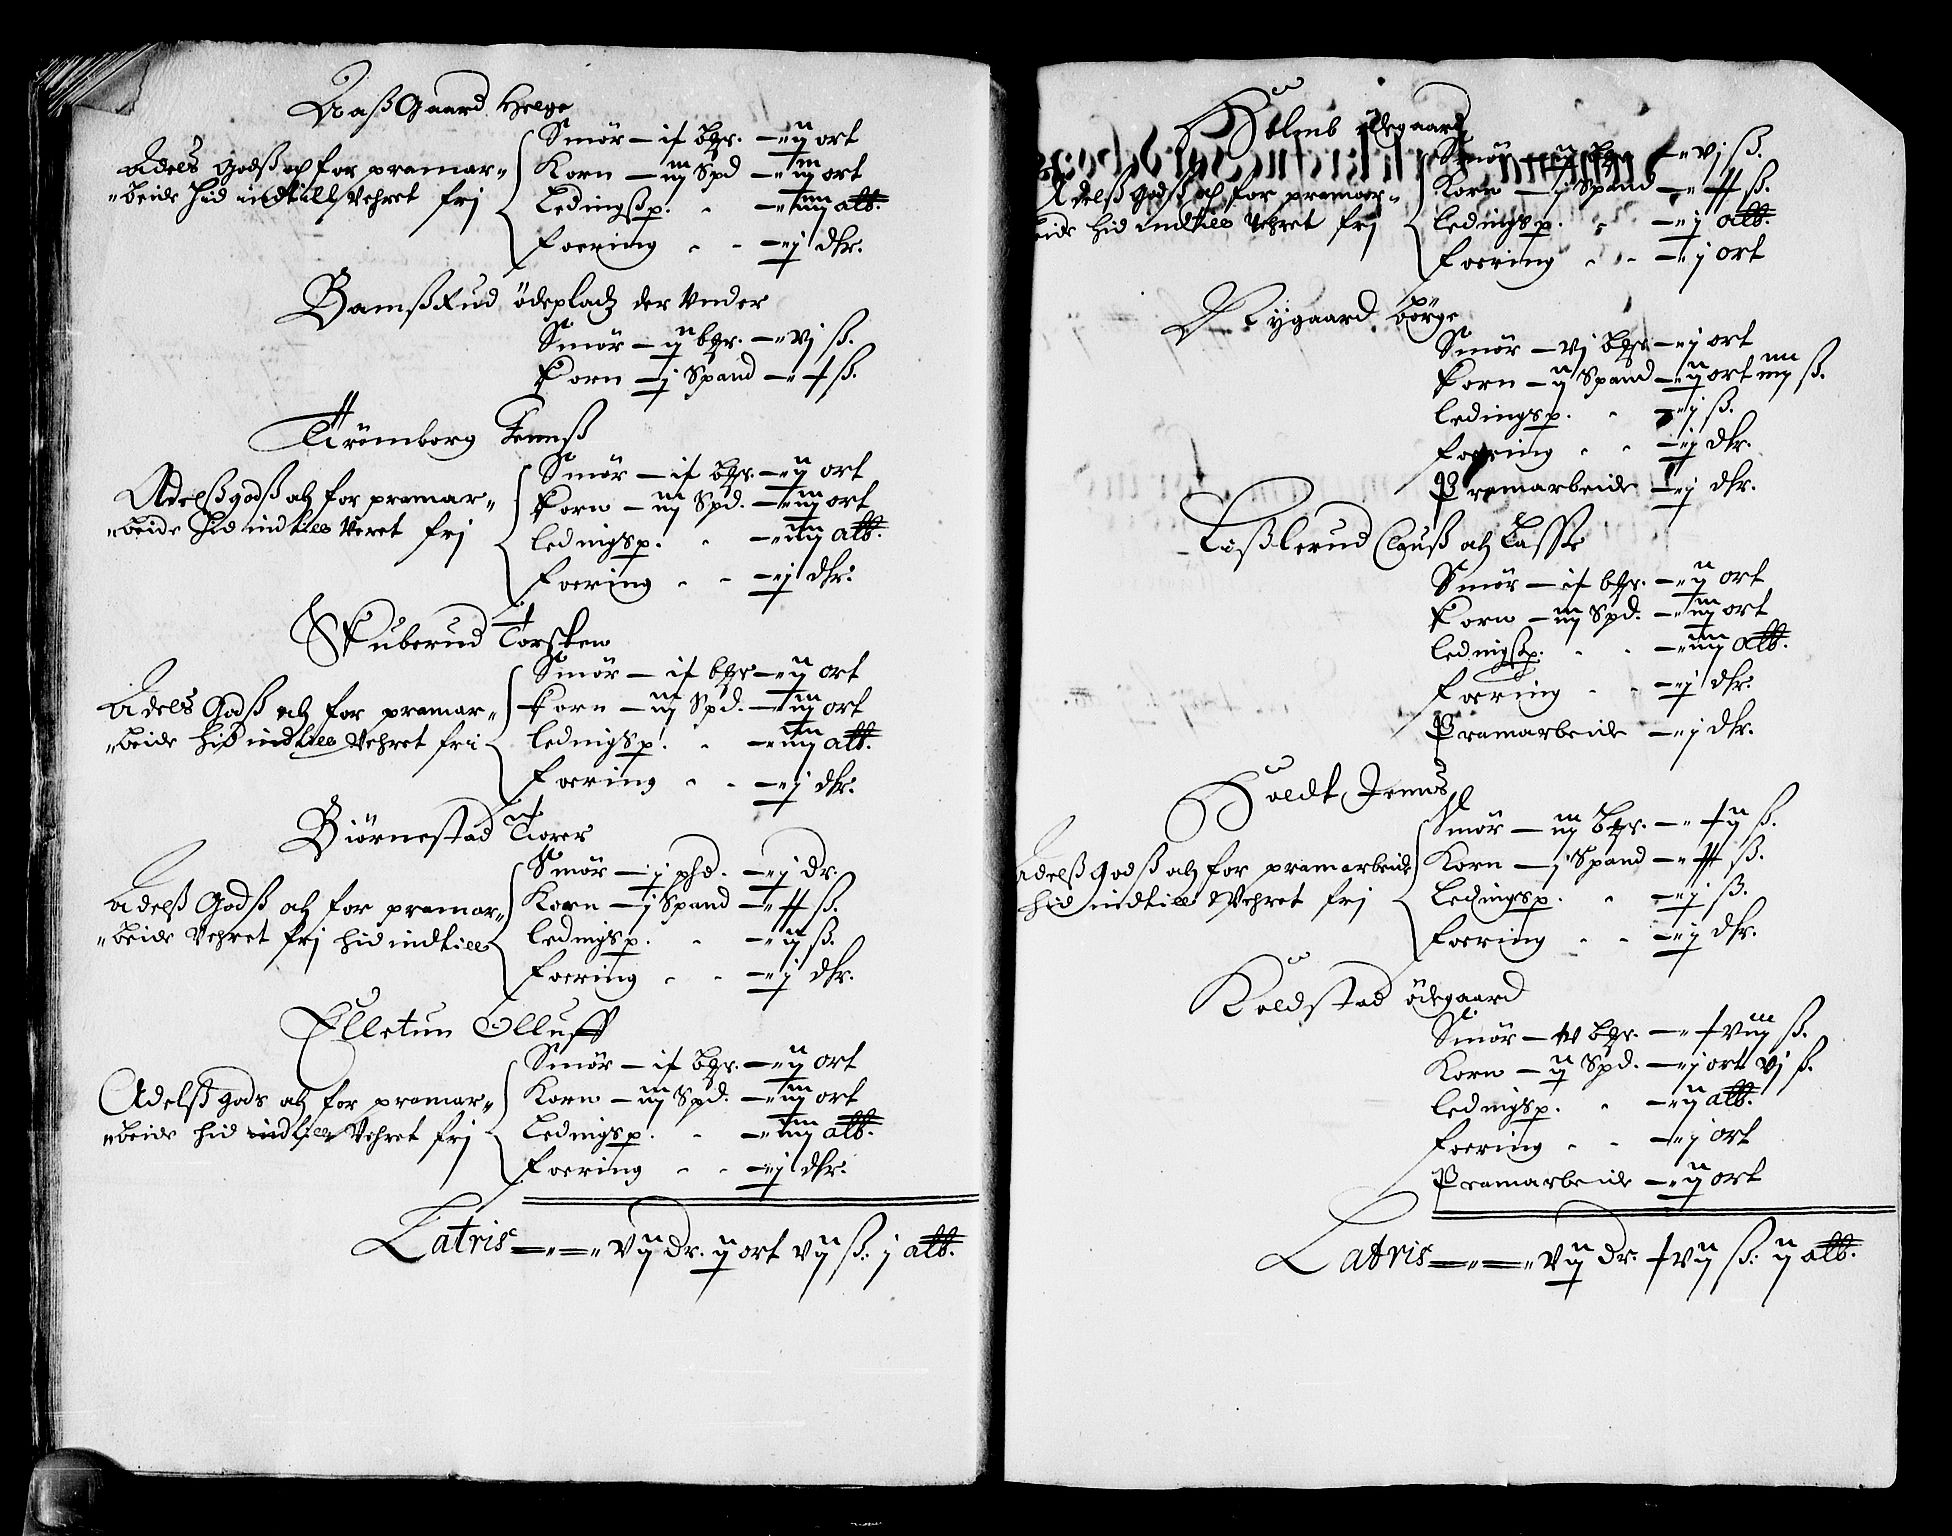 Aaß Gaard Helge
Adels godß och for pramar-
-beide hid indtill Vehret frj
Smör — if bgr. — ij ort
Korn — iij Spd — iij ort
Ledingßp. — iiij alb.
Foering — j dlr.
Bamßrud ödeplads der Vnder
Smör — ij bgr. — vj ß.
Korn — j Spand — x ß.
Trömborg Jenß
Adelß godß och for pramar-
-beide hid indtill Veret frj
Smör — if bgr. — ij ort
Korn — iij Spd. — iij ort
Ledingsp. — iiij alb.
Foering — j dlr.
Skuberud Torsten
Adels Godß och for pramar-
-beide hid indtill Vehret fri
Smör — if bgr — ij ort
Korn — iij Spd. — iij ort
Ledingsp. — iiij alb.
Foering — j dlr.
Biörnestad Tiorer
Adelß Godß och for pramar-
-beide Vehret frj hid indtill
Smör — j phd. — j dr.
Korn — j Spand — xx ß.
Ledingsp. — ij ß.
Foering — j dlr.
Elletun Olluff
Adelß gods och for pramar-
-beide hid indtill Vehret frj
Smör — if bgr. — ij ort
Korn — iij Spd. — iij ort
Ledingsp. — iiij alb.
Foering — j dlr.
Latris — vij dr. ij ort vij ß. j alb.
Holmb ödegaard
Adelß godß och for pramar-
beide hid indtill Vehret frj
Smör — ij bgr — vj ß.
Korn — j Spand — xx ß.
Ledingsp. — j alb.
Foering — j ort
Nygaard Börge
Smör — vj bgr — j ort
Korn — ij Spand — ij ort iiij ß.
Ledingsp. — j ß.
Foering — j dlr.
Pramarbeide — j dlr.
Tößlerud Clauß och Lasse
Smör — if bgr. — ij ort
Korn — iij Spd. — iij ort
Ledingßp. — iiij alb.
Foering — j dlr.
Pramarbeide — j dlr.
Holdt Jenns
Adelß godß och for pramarbeide
hid indtill Vehret frj
Smör — iij bgr. — xij ß.
Korn — j Spand — xx ß.
Ledingsp. — j ß.
Foering — j dlr.
Koldstad ödegaard
Smör — bgr. — xviij ß.
Korn — ij Spd. — j ort vj ß.
Ledingsp. — ij alb.
Foering — j ort
Pramarbeide — ij ort
Latris — vij dr. xvij ß. ij alb.